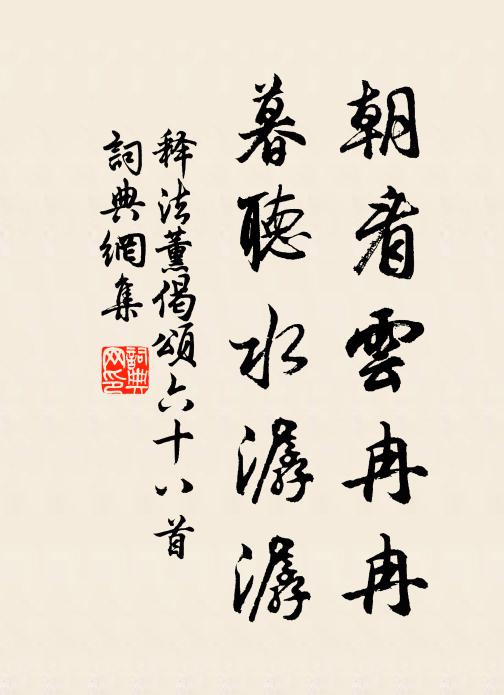 朝看雲冉冉
暮聽水潺潺
释法薰偈頌六十八首
詞典網集
詞典網印